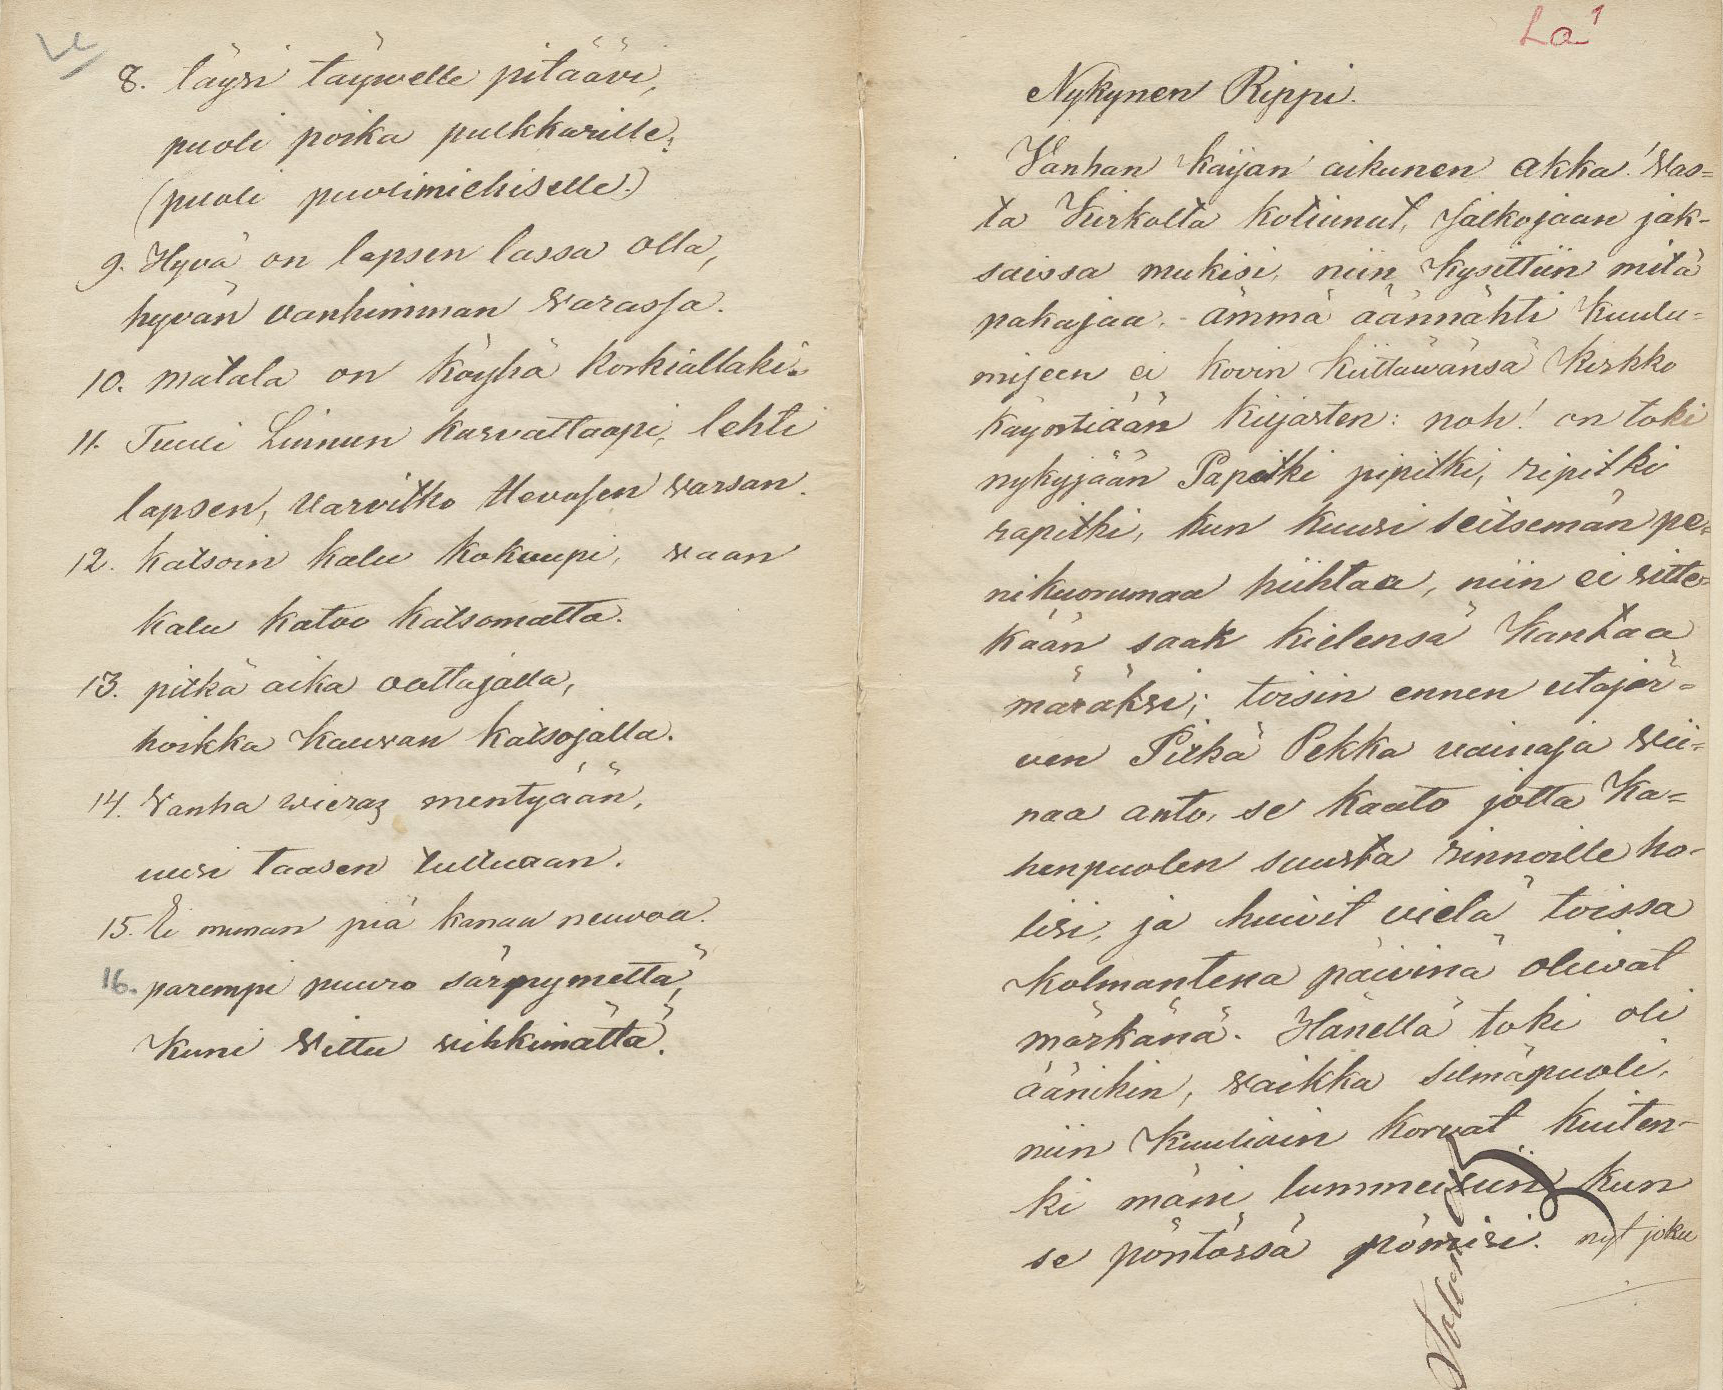 8. täysi täywelle pitäävi,
puoli poika pulkkarille;
(puoli puolimiehiselle.)
9. Hyvä on lapsen lassa olla,
hyvän vanhimman warassa.
10. matala on köyhä korkiallaki.
11. Tuuli Linnun kasvattaapi, lehti
lapsen, varvitko Hevosen warsan.
12. katsoin kalu kokuupi, waan
kalu katoo katsomatta.
13. pitkä aika oottajalla,
hoikka kauwan katsojalla.
14. Wanha wieras mentyään,
uusi taasen tultuaan.
15. Ei munan piä kanaa neuvoa.
16. parempi puuro särpymettä,
Kuni Wittu wihkimättä.
La
Nykynen Rippi.
Wanhan kaijan aikunen akka! Was-
ta Kirkolta kotiunut, Jalkojaan jak-
saissa mukisi, niin kysittiin mitä
pakajaa. ämmä äännähti kuulu-
mijeen ei kovin kiittäwänsä kirkko
käyntiään kiijasten: noh! on toki
nykyjään Papitki pipitki, ripitki
rapitki, kun kuusi seitsemän pe-
nikuorumaa hiihtaa, niin ei sitte-
kään saak kielensä kantaa
märäksi; toisin ennen utajär-
ven Pitkä Pekka vainaja wii-
naa anto, se kaato jotta ka-
henpuolen suusta rinnoille ho-
lisi, ja huivit vielä toissa
kolmantena päivinä oliwat
märkänä. Hänellä toki oli
äänikin, waikka silmäpuoli,
niin kuuliain korwat kuiten-
ki mäni lummeisiin kun
se pöntössä pömisi. nyt joku